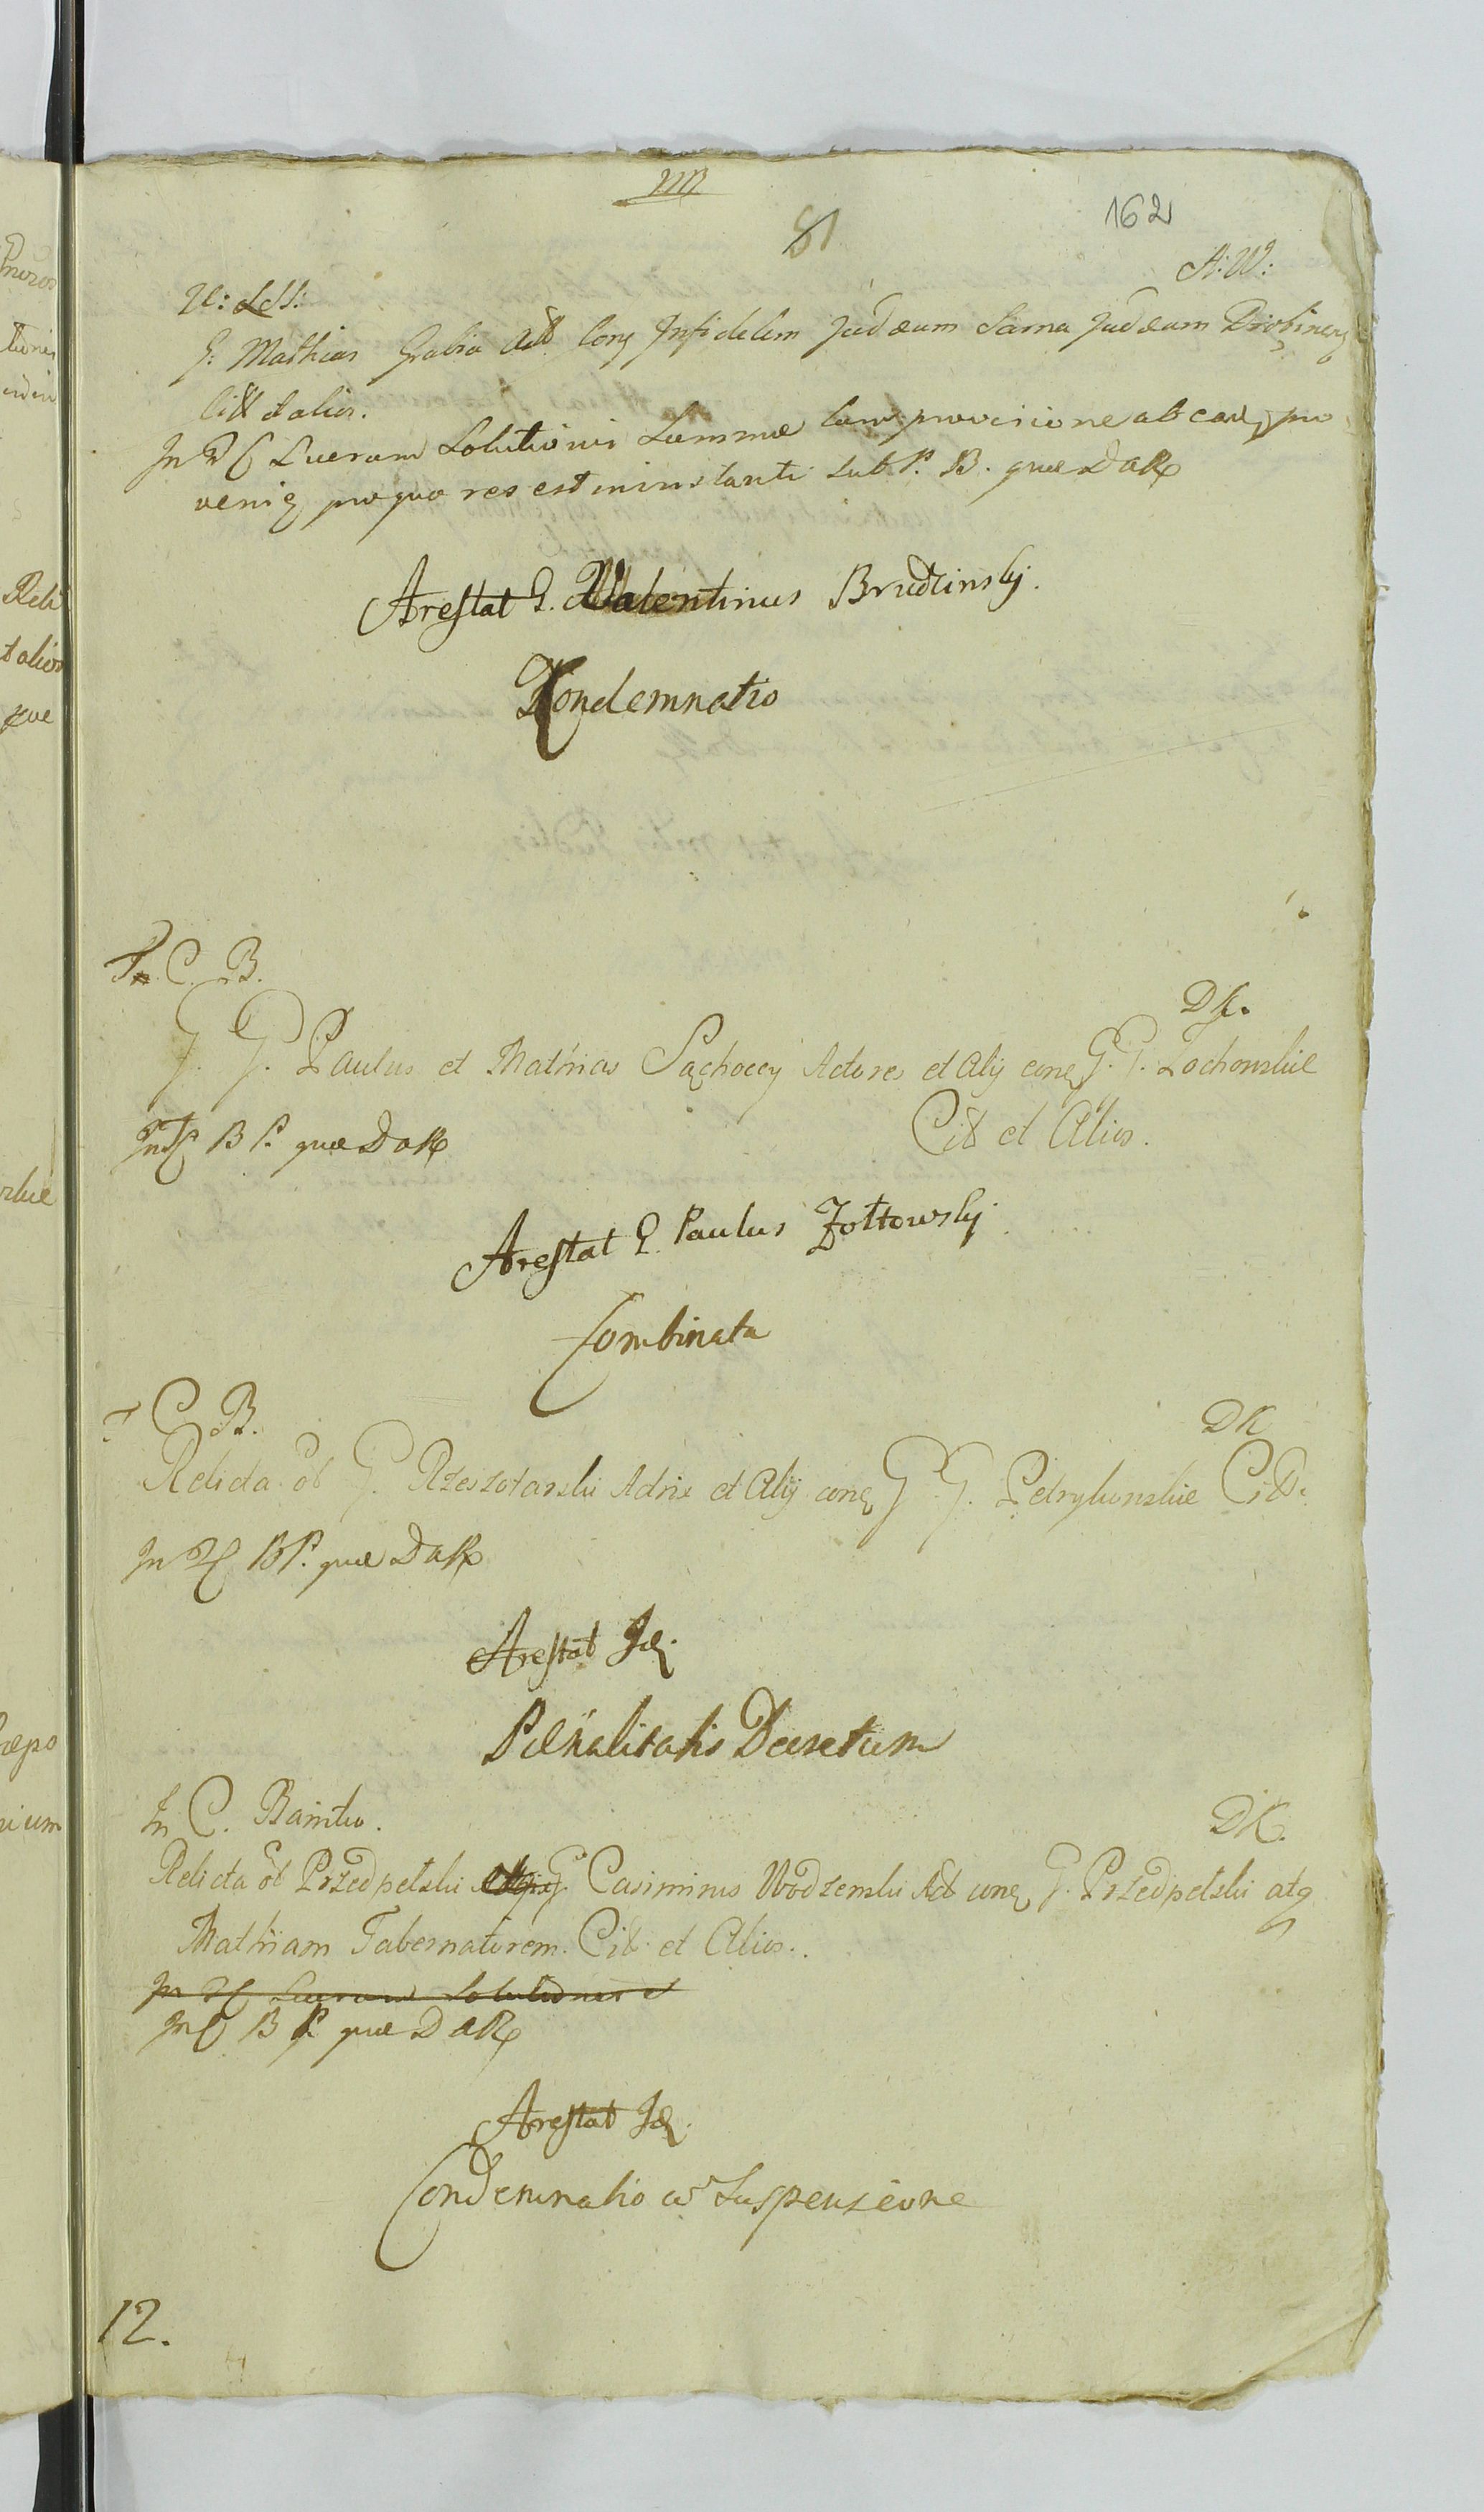 81
162
A: W:
G: Mathias Grabia Act Conq Infidelem Judæum Sarna Judæum Drobinens
Citt et alios.
Lucrum Solutionis Summæ cum provisione ab eadq pro
veniq pro qua res est in instanti sub P. B. quæ DaR
Arestat G. Valentinus Brudzinsky.
Condemnatio
C. B.
DK.
G. G. Paulus et Mathias Sąchoccy Actores et Alij conq G. G. Zochowskie
Cit et Alios.
B P. quæ DaR
Arestat G. Paulus Zołtowsky.
Combinata
C B.
DK
Relicta ol G. Rzeszotarski Actrix et Alij conq G. G. Petrykowskie Cit.
In B P. quæ DaR
Arestat Idq.
Pœnalitatis Decretum
In C. Banito.
DK.
Relicta ol Przedpełski G. Casimirus Wodzenski Act conq G. Przedpełski atq
Mathiam Tabernatorem. Cit. et Alios.
In Lucrum Solutionis
B P. quæ DaR
Arestat Idq.
Condemnatio cū Suspensione
12.